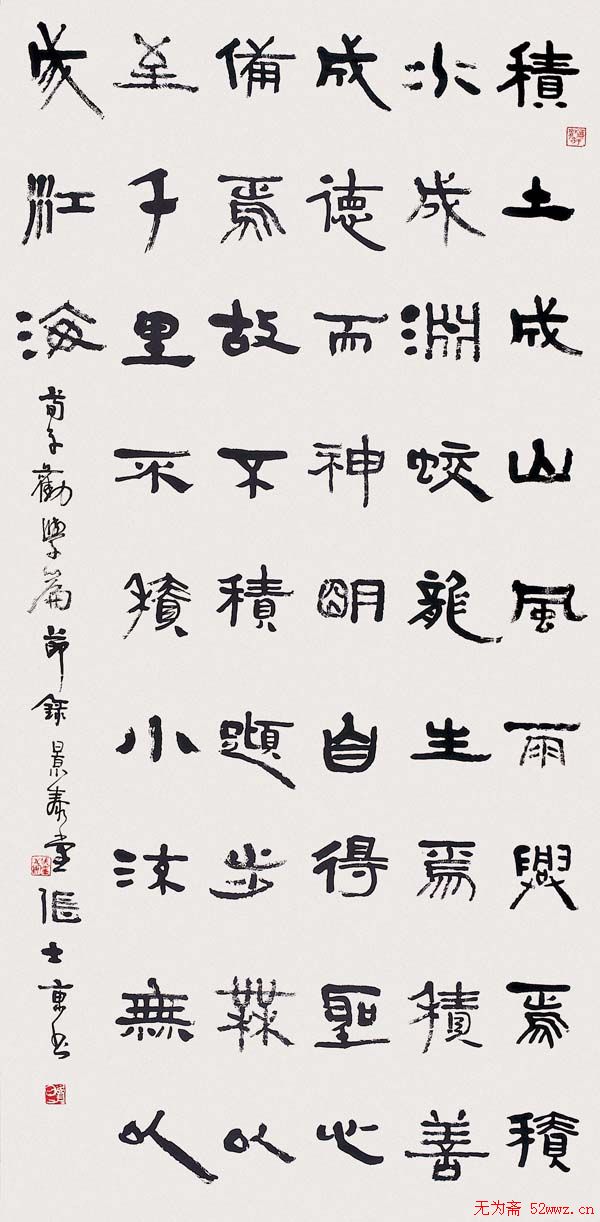 積土成山風雨興焉積
水成淵蛟龍生焉積善
成德而神明自得聖心
備焉故不積蹞步無以
至千里不積小流無以
成江海
荀子勸學篇節錄景泰堂張士東書
无为斋 52wwz.cn